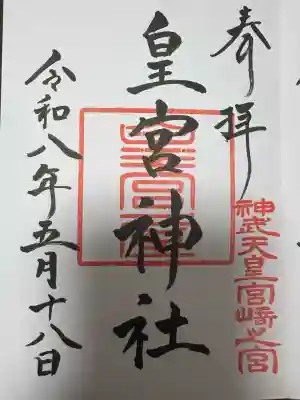 奉拝
神武天皇宮崎之宮
皇宮神社
令和八年五月十八日